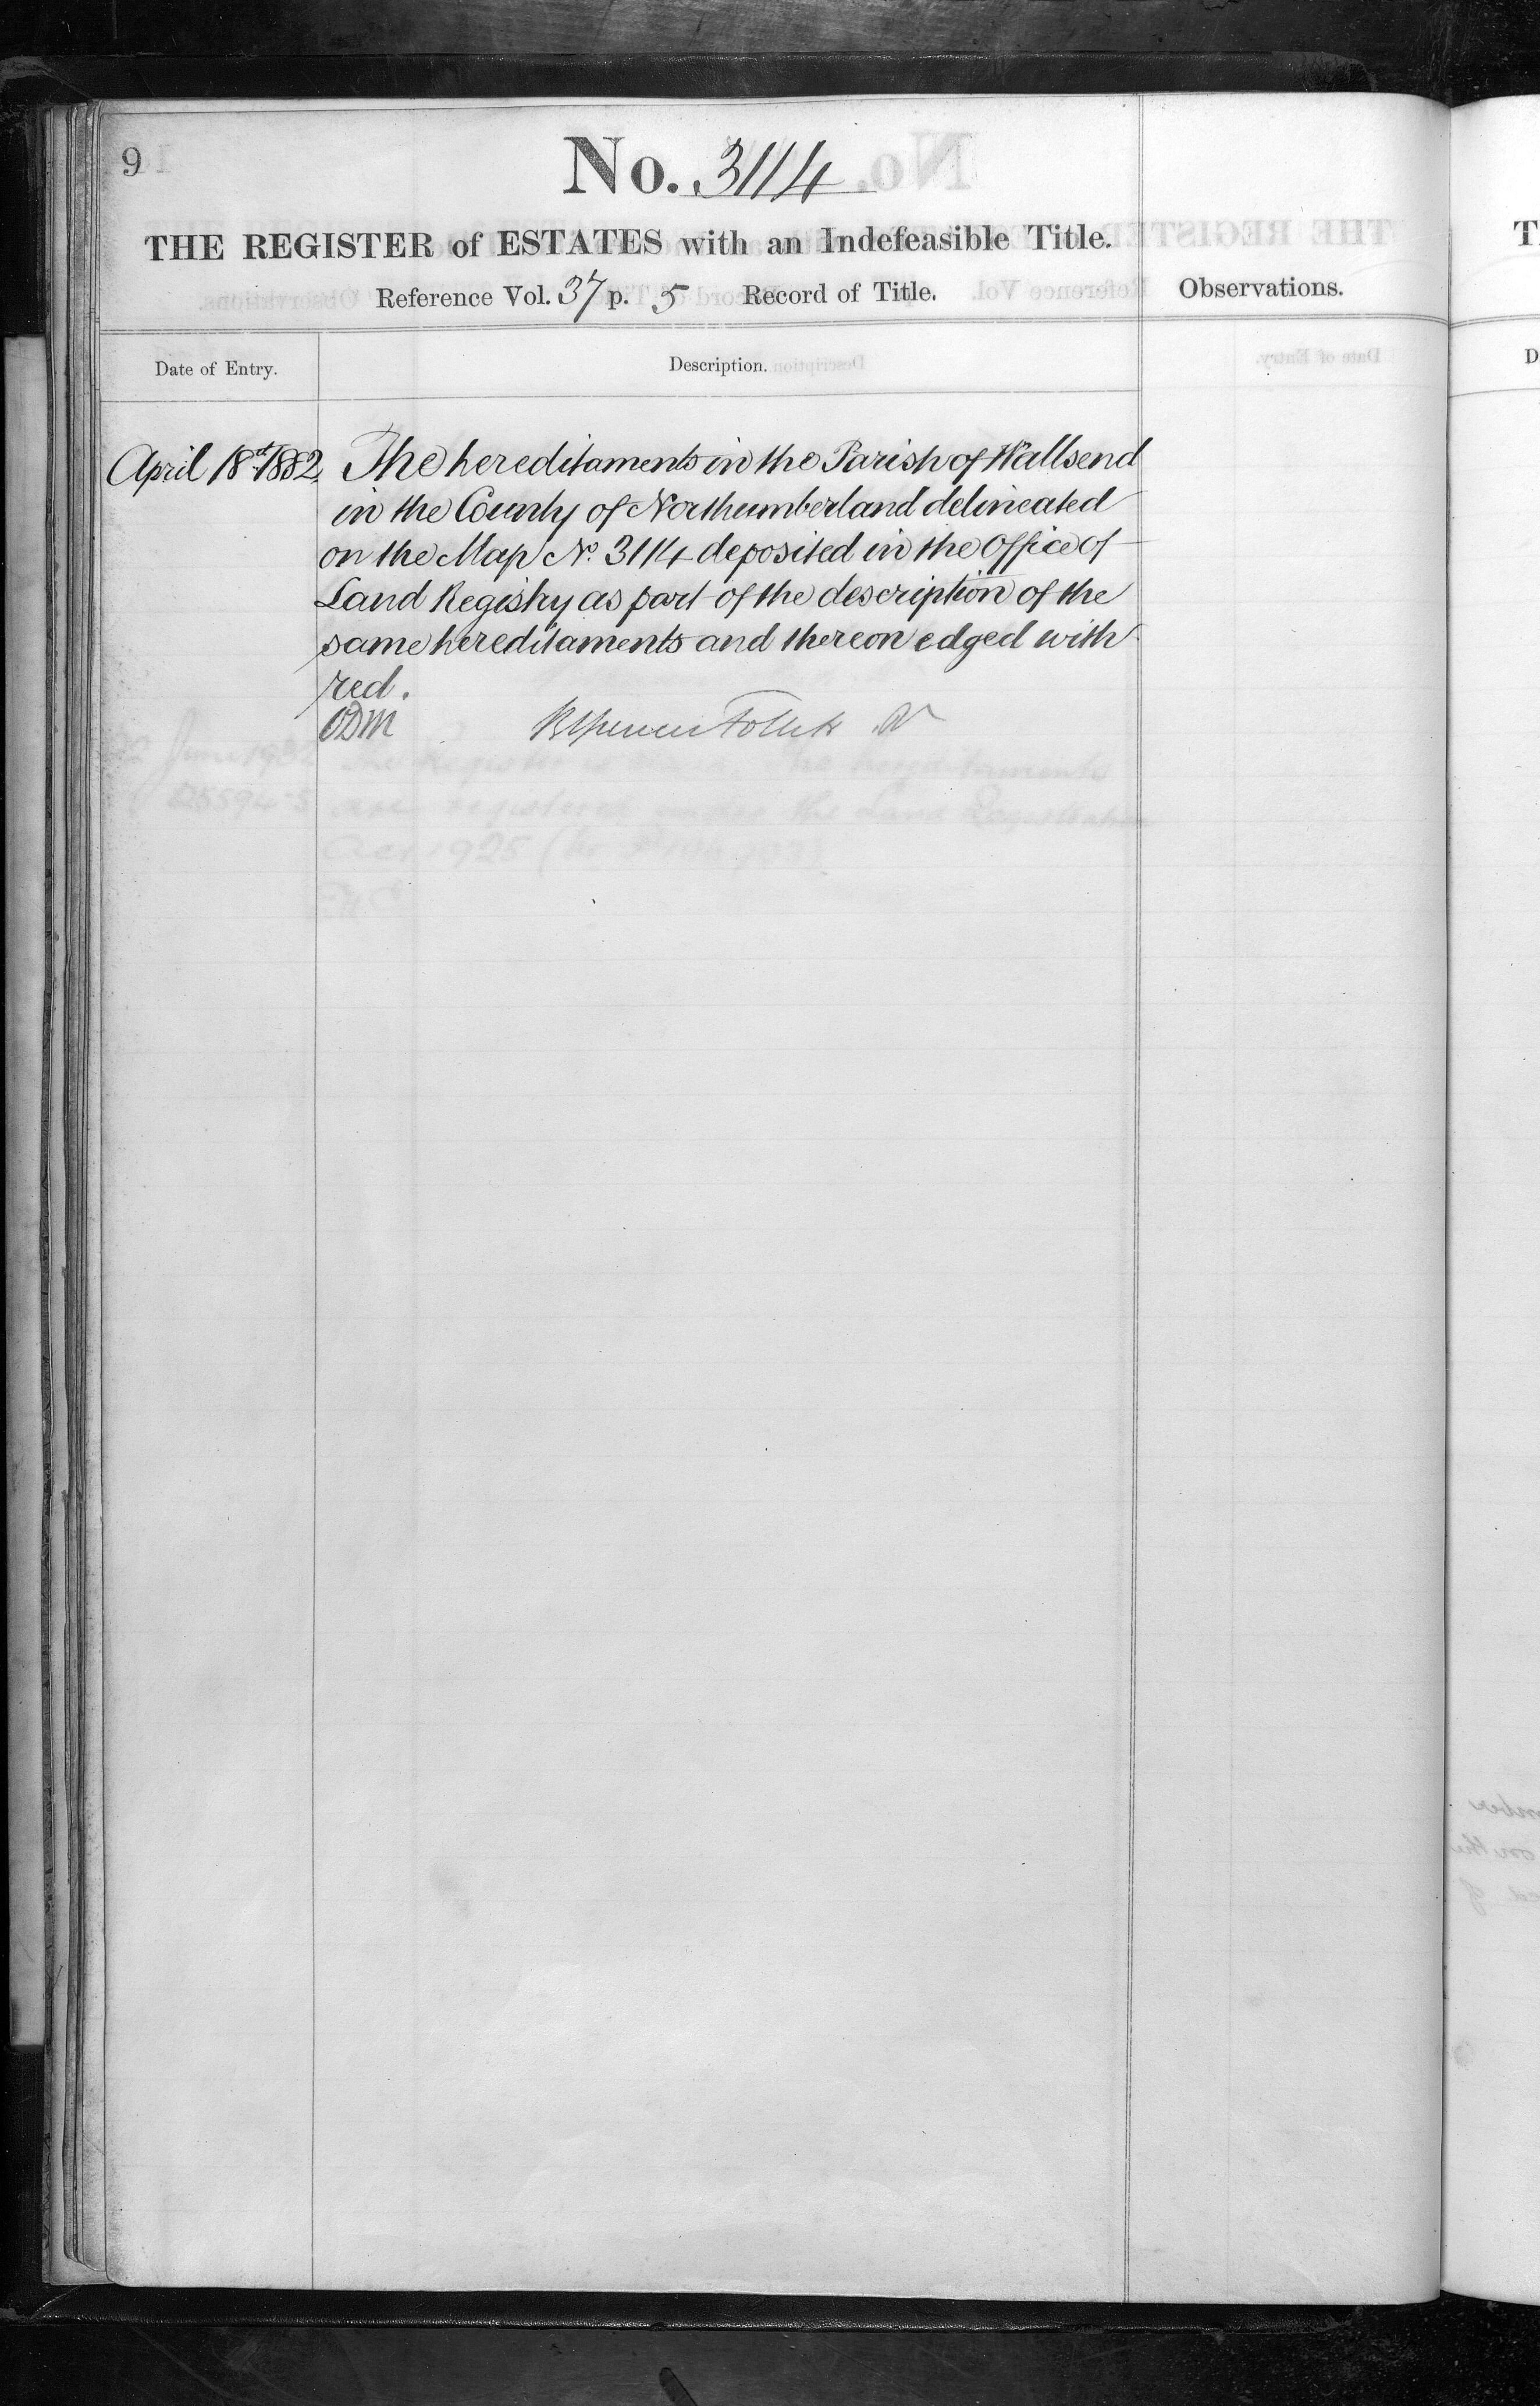 9
No. 3114
THE REGISTER of ESTATES with an Indefeasible Title.
Reference Vol. 37 p. 5 Record of Title.
Observations.
Date of Entry.
Description.
April 18th 1882. The hereditaments in the Parish of Wallsend
in the County of Northumberland delineated
on the Map No. 3114 deposited in the Office of
Land Registry as part of the description of the
same hereditaments and thereon edged with
red.
ODM
June 1932 The Register is The hereditaments
are registered under the Land Registration
Act 1925